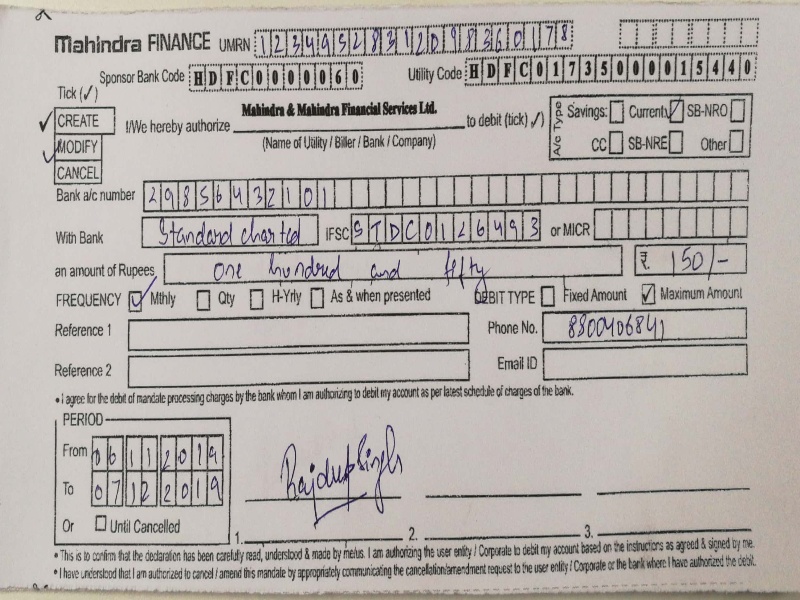 Mahindra FINANCE UMRN 12349528312098360178
Sponsor Bank Code HDFC0000060 Utility Code HDFC01735000015440
Tick (✓)
CREATE
MODIFY
CANCEL
I/We hereby authorize Mahindra & Mahindra Financial Services Ltd. to debit (tick ✓)
(Name of Utility / Biller / Bank / Company)
A/c Type Savings: Current ✓ SB-NRO
CC SB-NRE Other
Bank a/c number 29856432101
With Bank Standard charted IFSC STDC0126493 or MICR
an amount of Rupees one hundred and fifty ₹ 150/-
FREQUENCY ✓ Mthly Qty H-Yrly As & when presented DEBIT TYPE Fixed Amount ✓ Maximum Amount
Reference 1 Phone No. 8800406841
Reference 2 Email ID
• I agree for the debit of mandate processing charges by the bank whom I am authorizing to debit my account as per latest schedule of charges of the bank.
PERIOD
From 06112019
To 07122019
Or Until Cancelled
Rajdeep Singh
1. 2. 3.
• This is to confirm that the declaration has been carefully read, understood & made by me/us. I am authorizing the user entity / Corporate to debit my account based on the instructions as agreed & signed by me.
• I have understood that I am authorized to cancel / amend this mandate by appropriately communicating the cancellation/amendment request to the user entity / Corporate or the bank where I have authorized the debit.